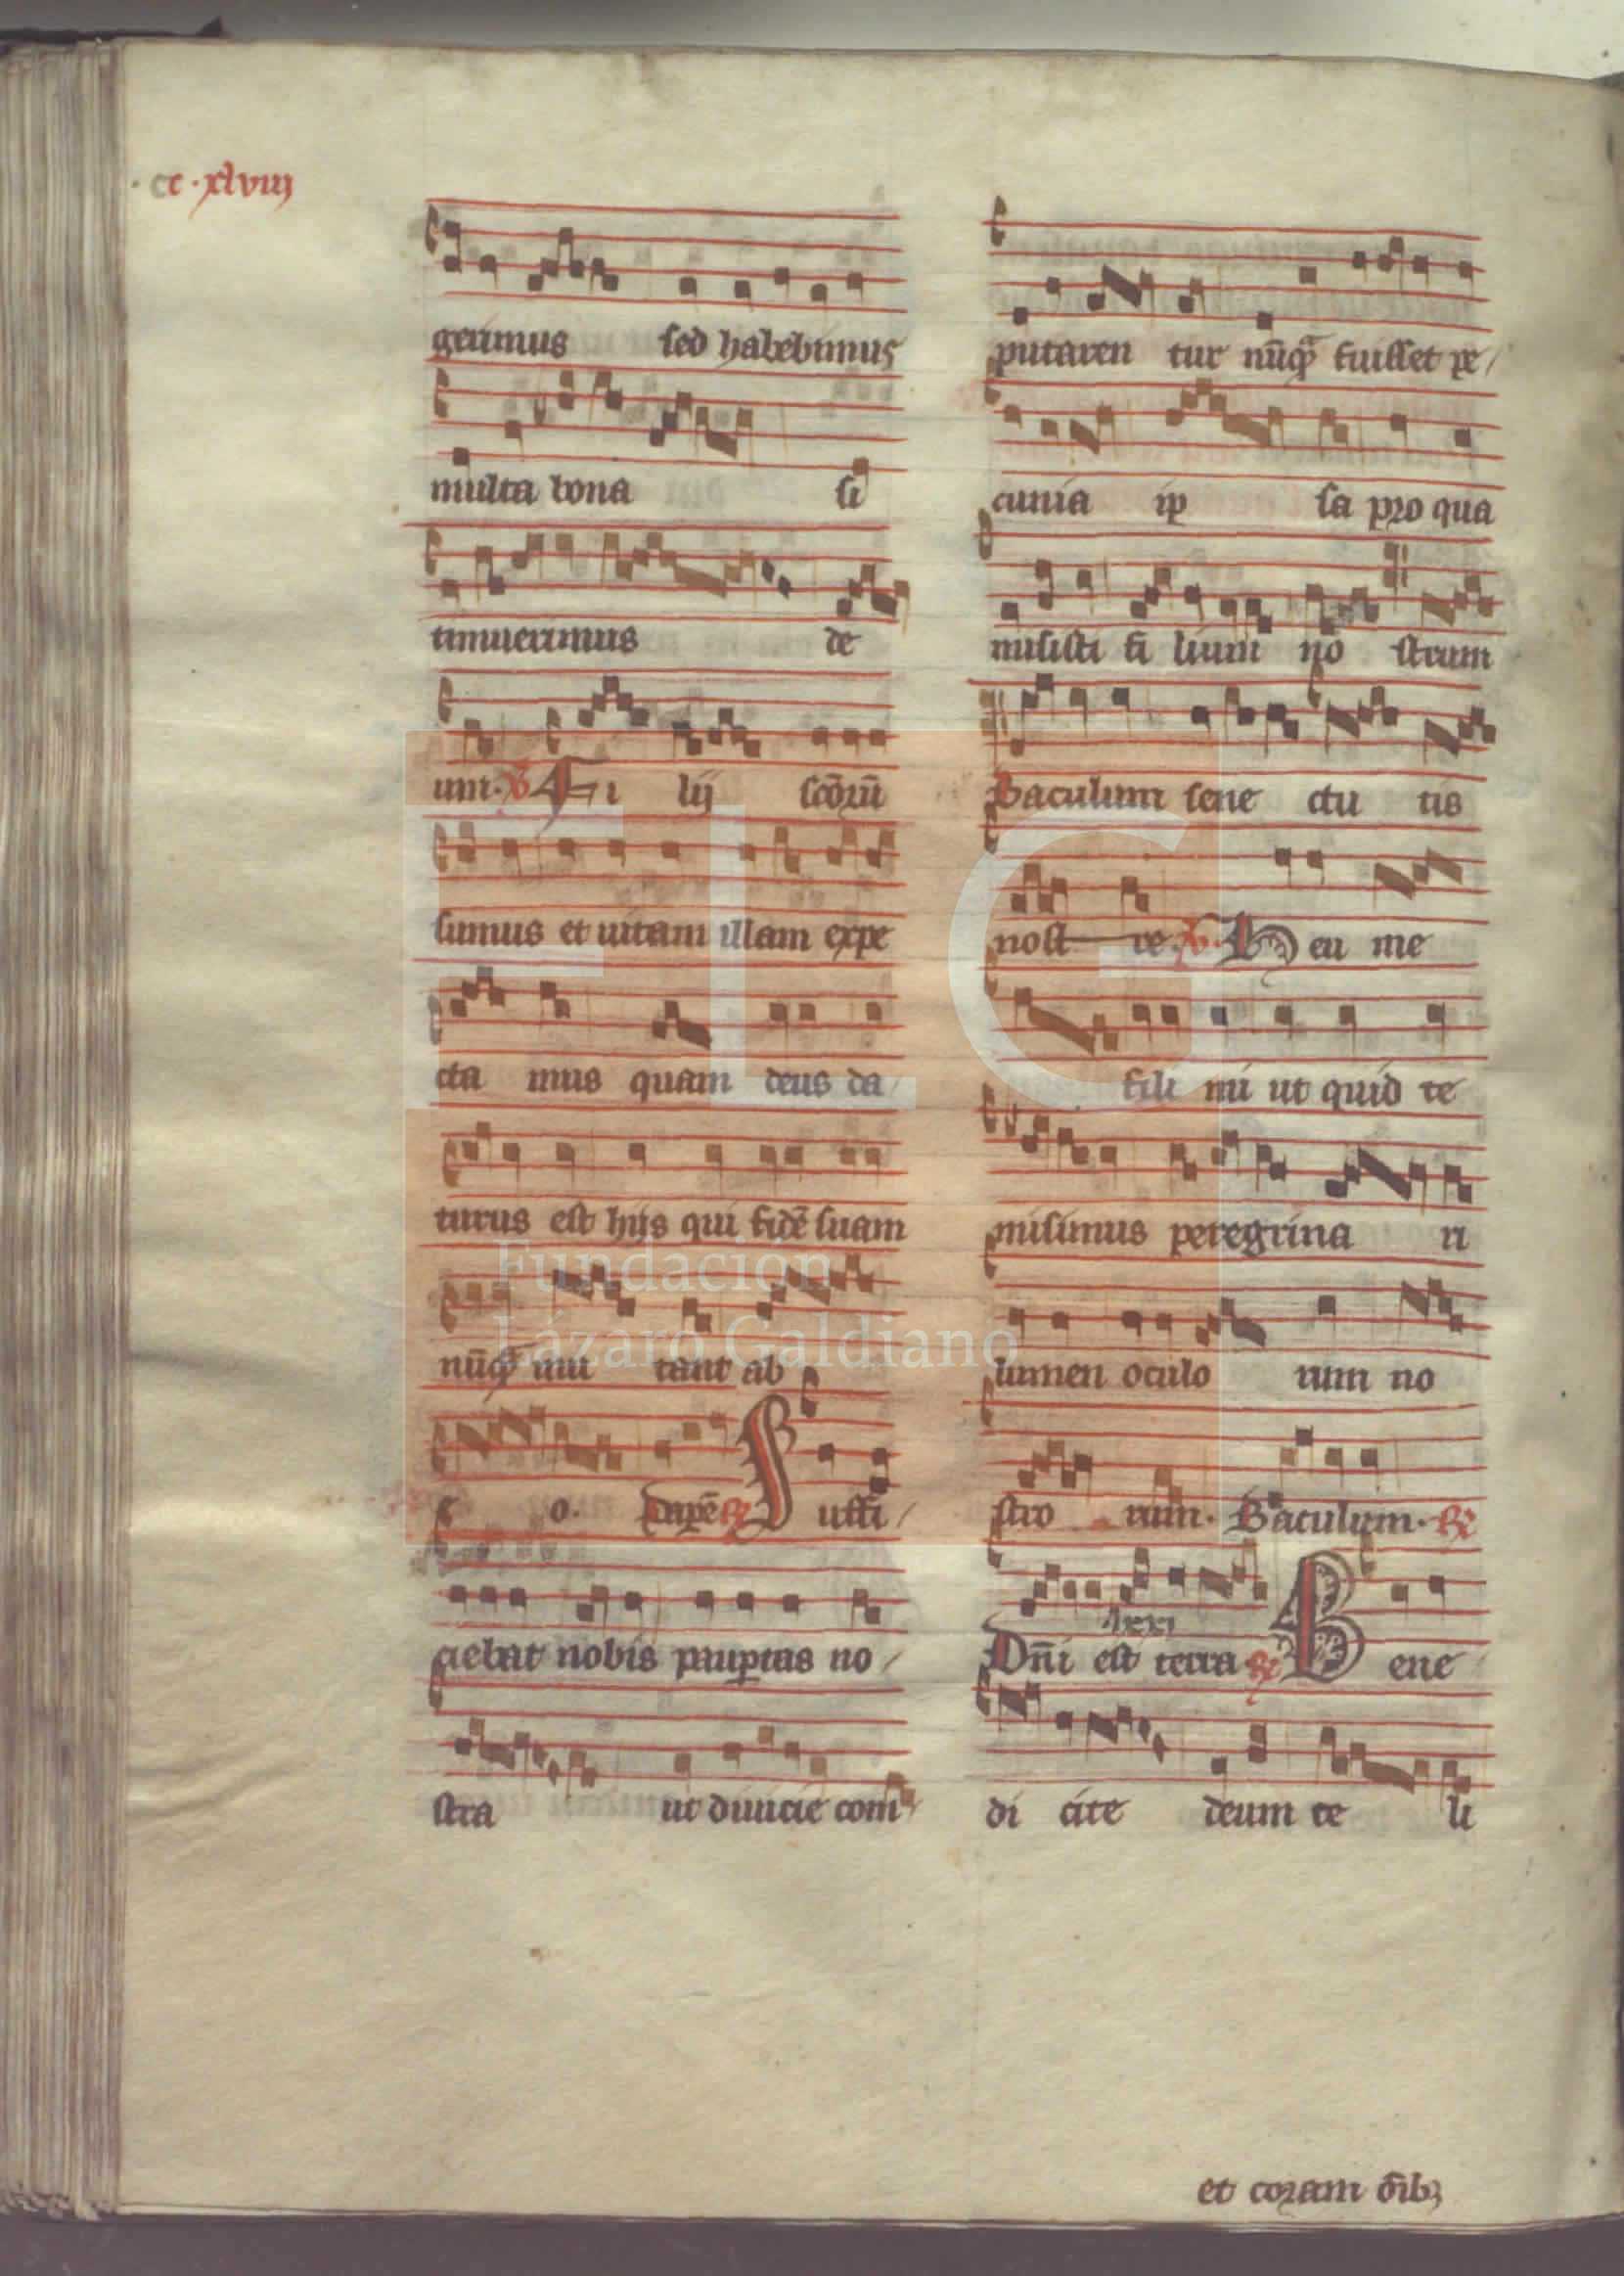 ·cc·xlviij
gerimus sed habebimus
multa bona si
timuerimus de
um. ℣ Fi lij sc̄oꝝū
sumus et uitam illam expe
cta mus quam deus da/
turus est hijs qui fidē suam
nūqᷓ mu tant ab
e o. Paupē ℟ Suffi/
ciebat nobis paup̄tas no/
stra ut diuicie com/
putaren tur nūqᷓ fuisset pe/
cunia ip sa pro qua
misisti fi lium no strum
Baculum sene ctu tis
nost re. ℣. Heu me
fili mi ut quid te
misimus peregrina ri
lumen oculo rum no
stro rum. Baculum. ℟
Dn̄i est terra ℟ Bene
di cite deum ce li
et coram oīb3
FLG
Fundación
Lázaro Galdiano